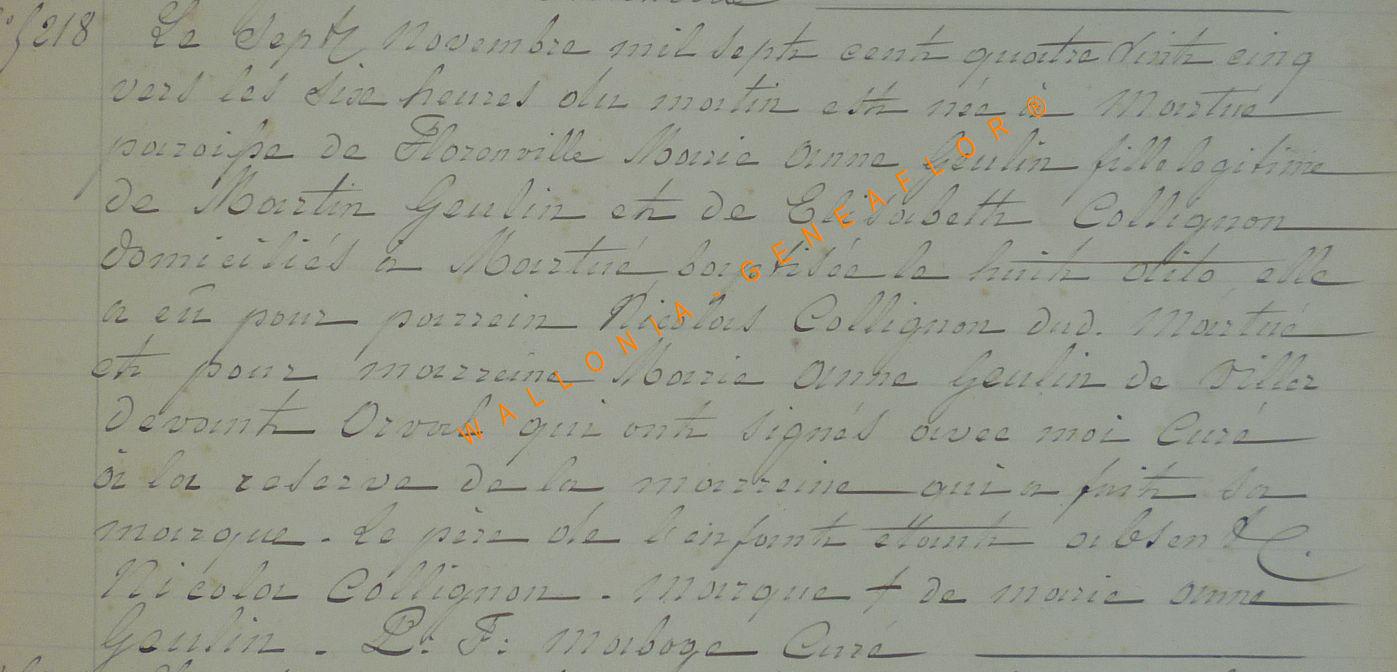 N° 218 Le Sept Novembre mil sept cent quatre vint cinq
vers les six heures du matin est née à Martué
paroisse de Florenville Marie Anne Geulin fille legitime
de Martin Geulin et de Elisabeth Collignon
domiciliés a Martué baptisée le huit dito elle
a eû pour parrein Nicolas Collignon dud. Martué
et pour marreine Marie Anne Geulin de Viller
devant Orval qui ont signés avec moi Curé
à la reserve de la marreine qui a fait sa
marque. Le père de l'enfant etant absent &c.
Nicola Collignon. Marque † de marie anne
Geulin. P: F: Maboge Curé
WALLONIA - GENEAFLOR ®